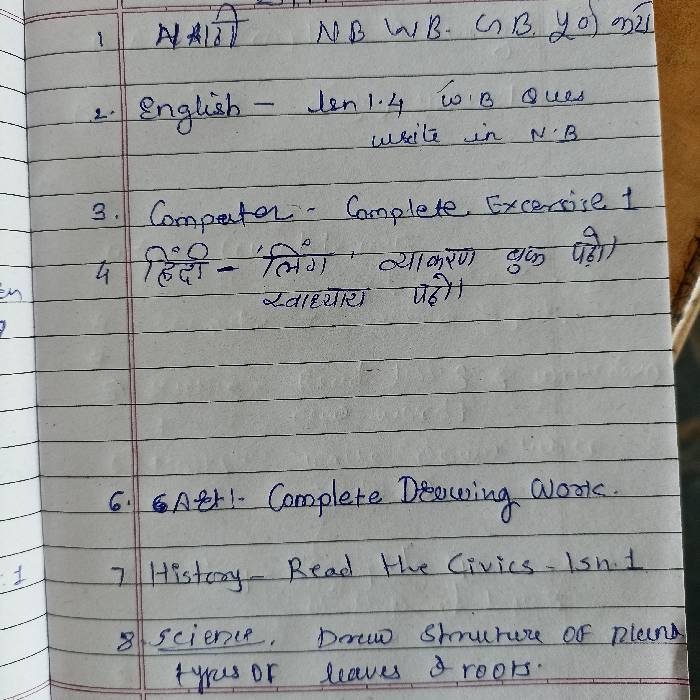 1 मराठी NB WB. GB. पूर्ण करा
2. English - lsn 1.4 W.B Ques
write in N.B
3. Computer - Complete Excercise 1
4 हिंदी - 'लिंग' व्याकरण बुक पढ़ो।
स्वाध्याय पढ़ो।
6. Art!- Complete Drawing Work.
7 History - Read the Civics - lsn. 1
8. Science. Draw Struture OF Plant
types OF leaves & roots.
: 1